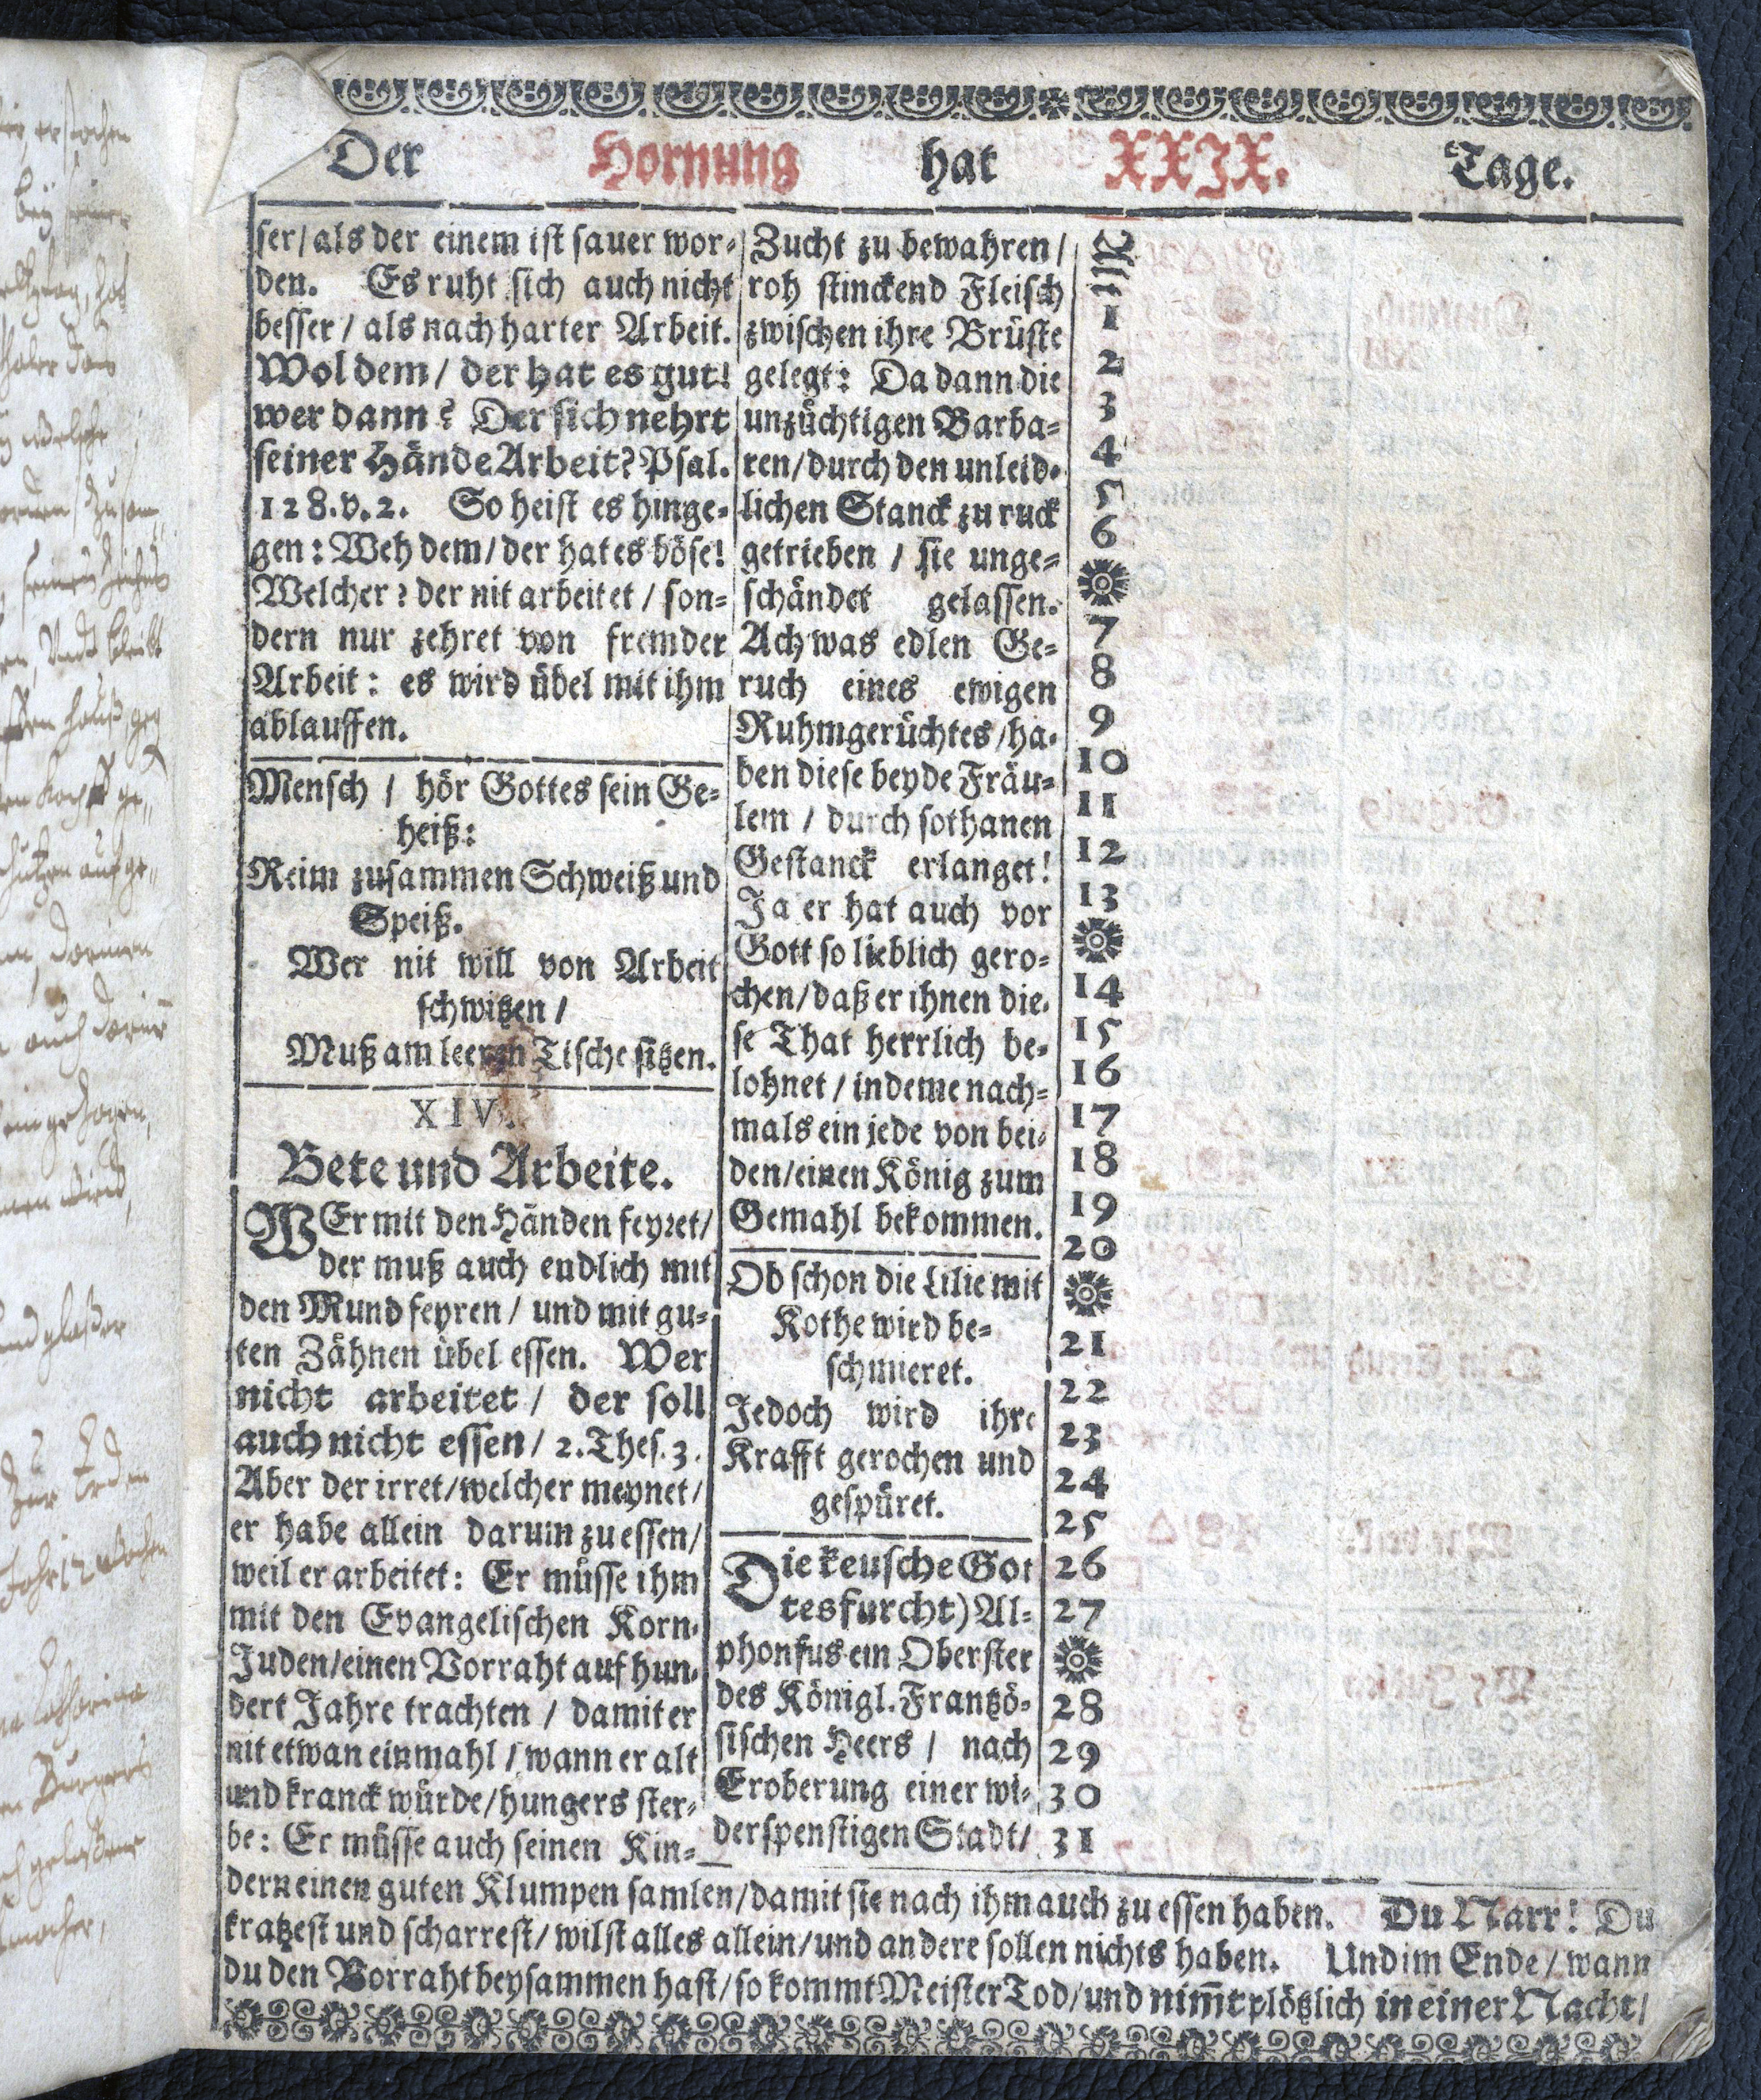 Der Hornung hat XXIX. Tage.
ser/als der einem ist sauer wor-
den. Es ruht sich auch nicht
besser / als nach harter Arbeit.
Wol dem / der hat es gut!
wer dann? Der sich nehrt
seiner Hände Arbeit? Psal.
128.v.2. So heist es hinge-
gen: Weh dem/der hat es böse!
Welcher? der nit arbeitet / son-
dern nur zehret von fremder
Arbeit: es wird übel mit ihm
ablauffen.
Mensch / hör Gottes sein Ge-
heiß:
Reim zusammen Schweiß und
Speiß.
Wer nit will von Arbeit
schwitzen /
Muß am leeren Tische sitzen.
XIV.
Bete und Arbeite.
WEr mit den Händen feyret/
der muß auch endlich mit
den Mund feyren / und mit gu-
ten Zähnen übel essen. Wer
nicht arbeitet / der soll
auch nicht essen / 2. Thes. 3.
Aber der irret/welcher meynet/
er habe allein darum zu essen/
weil er arbeitet: Er müsse ihm
mit den Evangelischen Korn-
Juden/einen Vorraht auf hun-
dert Jahre trachten / damit er
nit etwan einmahl / wann er alt
und kranck würde/hungers ster-
be: Er müsse auch seinen Kin-
Zucht zu bewahren /
roh stinckend Fleisch
zwischen ihre Brüste
gelegt: Da dann die
unzüchtigen Barba-
ren/durch den unleid-
lichen Stanck zu ruck
getrieben / sie unge-
schändet gelassen.
Ach was edlen Ge-
ruch eines ewigen
Ruhmgerüchtes/ha-
ben diese beyde Fräu-
lein / durch sothanen
Gestanck erlanget!
Ja er hat auch vor
Gott so lieblich gero-
chen/daß er ihnen die-
se That herrlich be-
lohnet / indeme nach-
mals ein jede von bei-
den/einen König zum
Gemahl bekommen.
Ob schon die Lilie mit
Kothe wird be-
schmieret.
Jedoch wird ihre
Krafft gerochen und
gespüret.
Die keusche Got
tesfurcht) Al-
phonsus ein Oberster
des Königl. Frantzö-
sischen Heers / nach
Eroberung einer wi-
derspenstigen Stadt/
1
2
3
4
5
6
7
8
9
10
11
12
13
14
15
16
17
18
19
20
21
22
23
24
25
26
27
28
29
30
31
dern einen guten Klumpen samlen/damit sie nach ihm auch zu essen haben. Du Narr! Du
kratzest und scharrest/ wilst alles allein/und andere sollen nichts haben. Und im Ende / wann
du den Vorraht beysammen hast/so kommt Meister Tod/und nim̃t plötzlich in einer Nacht/